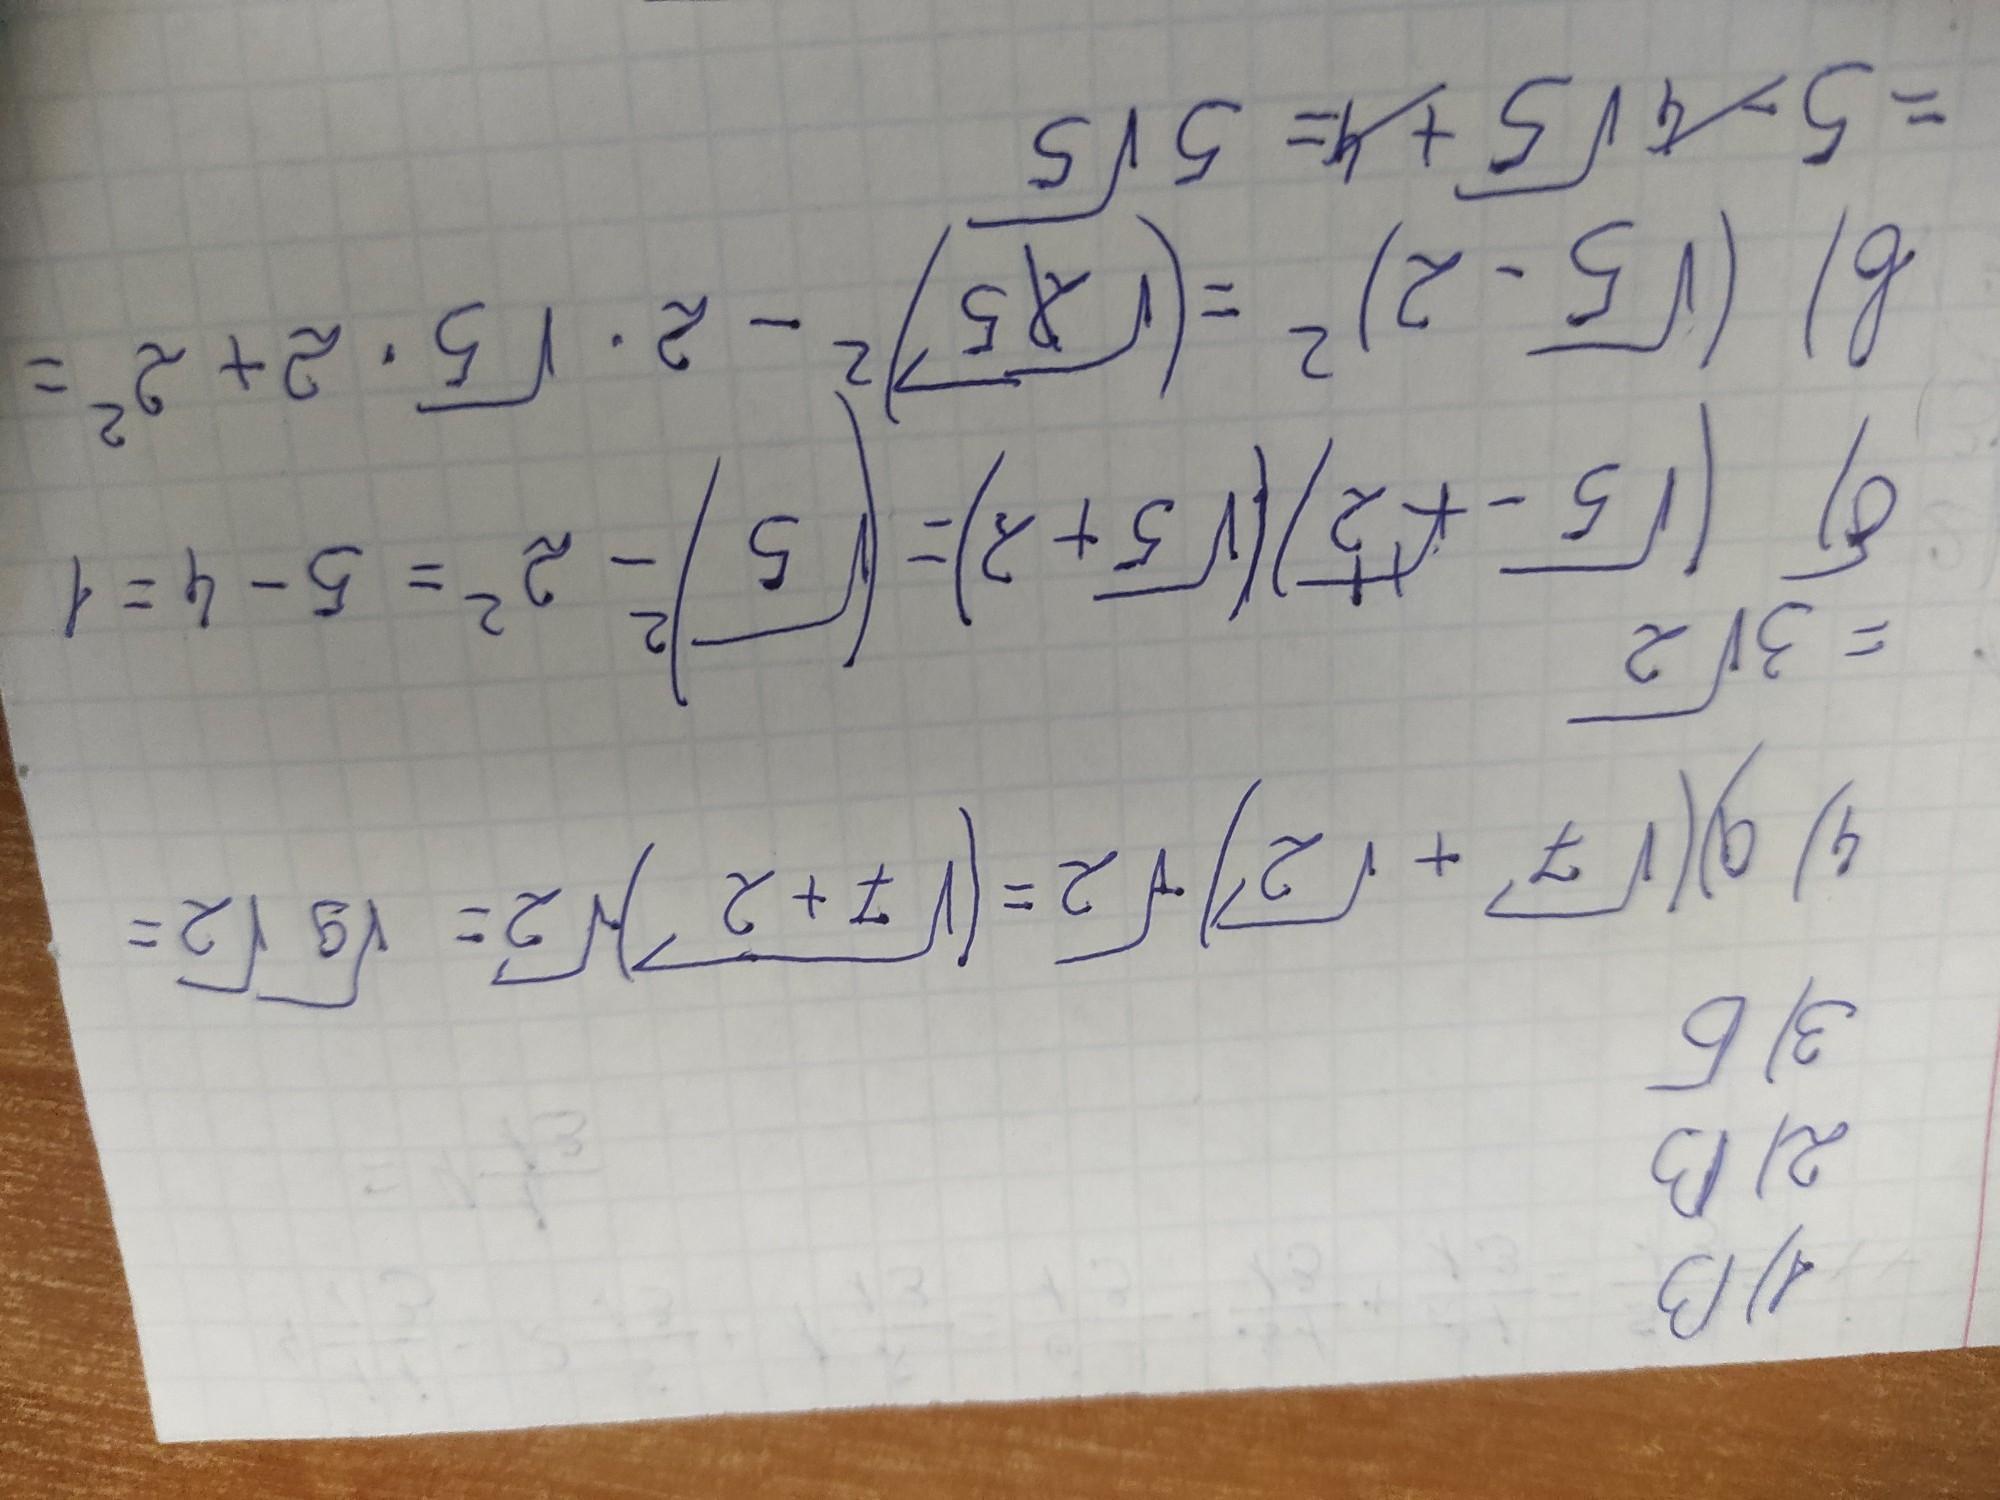 1) В
2) В
3) Б
4) а) (√7 + √2)√2 = (√7+2)√2 = √9 √2 =
= 3√2
б) (√5 - 2)(√5 + 2) = (√5)² - 2² = 5 - 4 = 1
в) (√5 - 2)² = (√5)² - 2 · √5 · 2 + 2² =
= 5 - 4√5 + 4 = 5√5